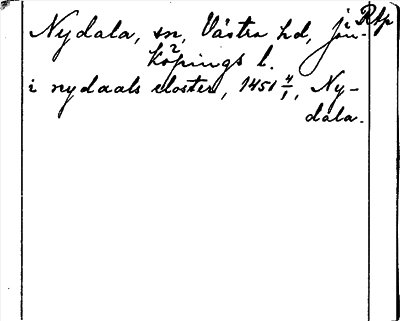 Rtp
Nydala, sn, Västra hd, Jön-
köpings l.
i nydaals closter, 1451 4/1, Ny-
dala.